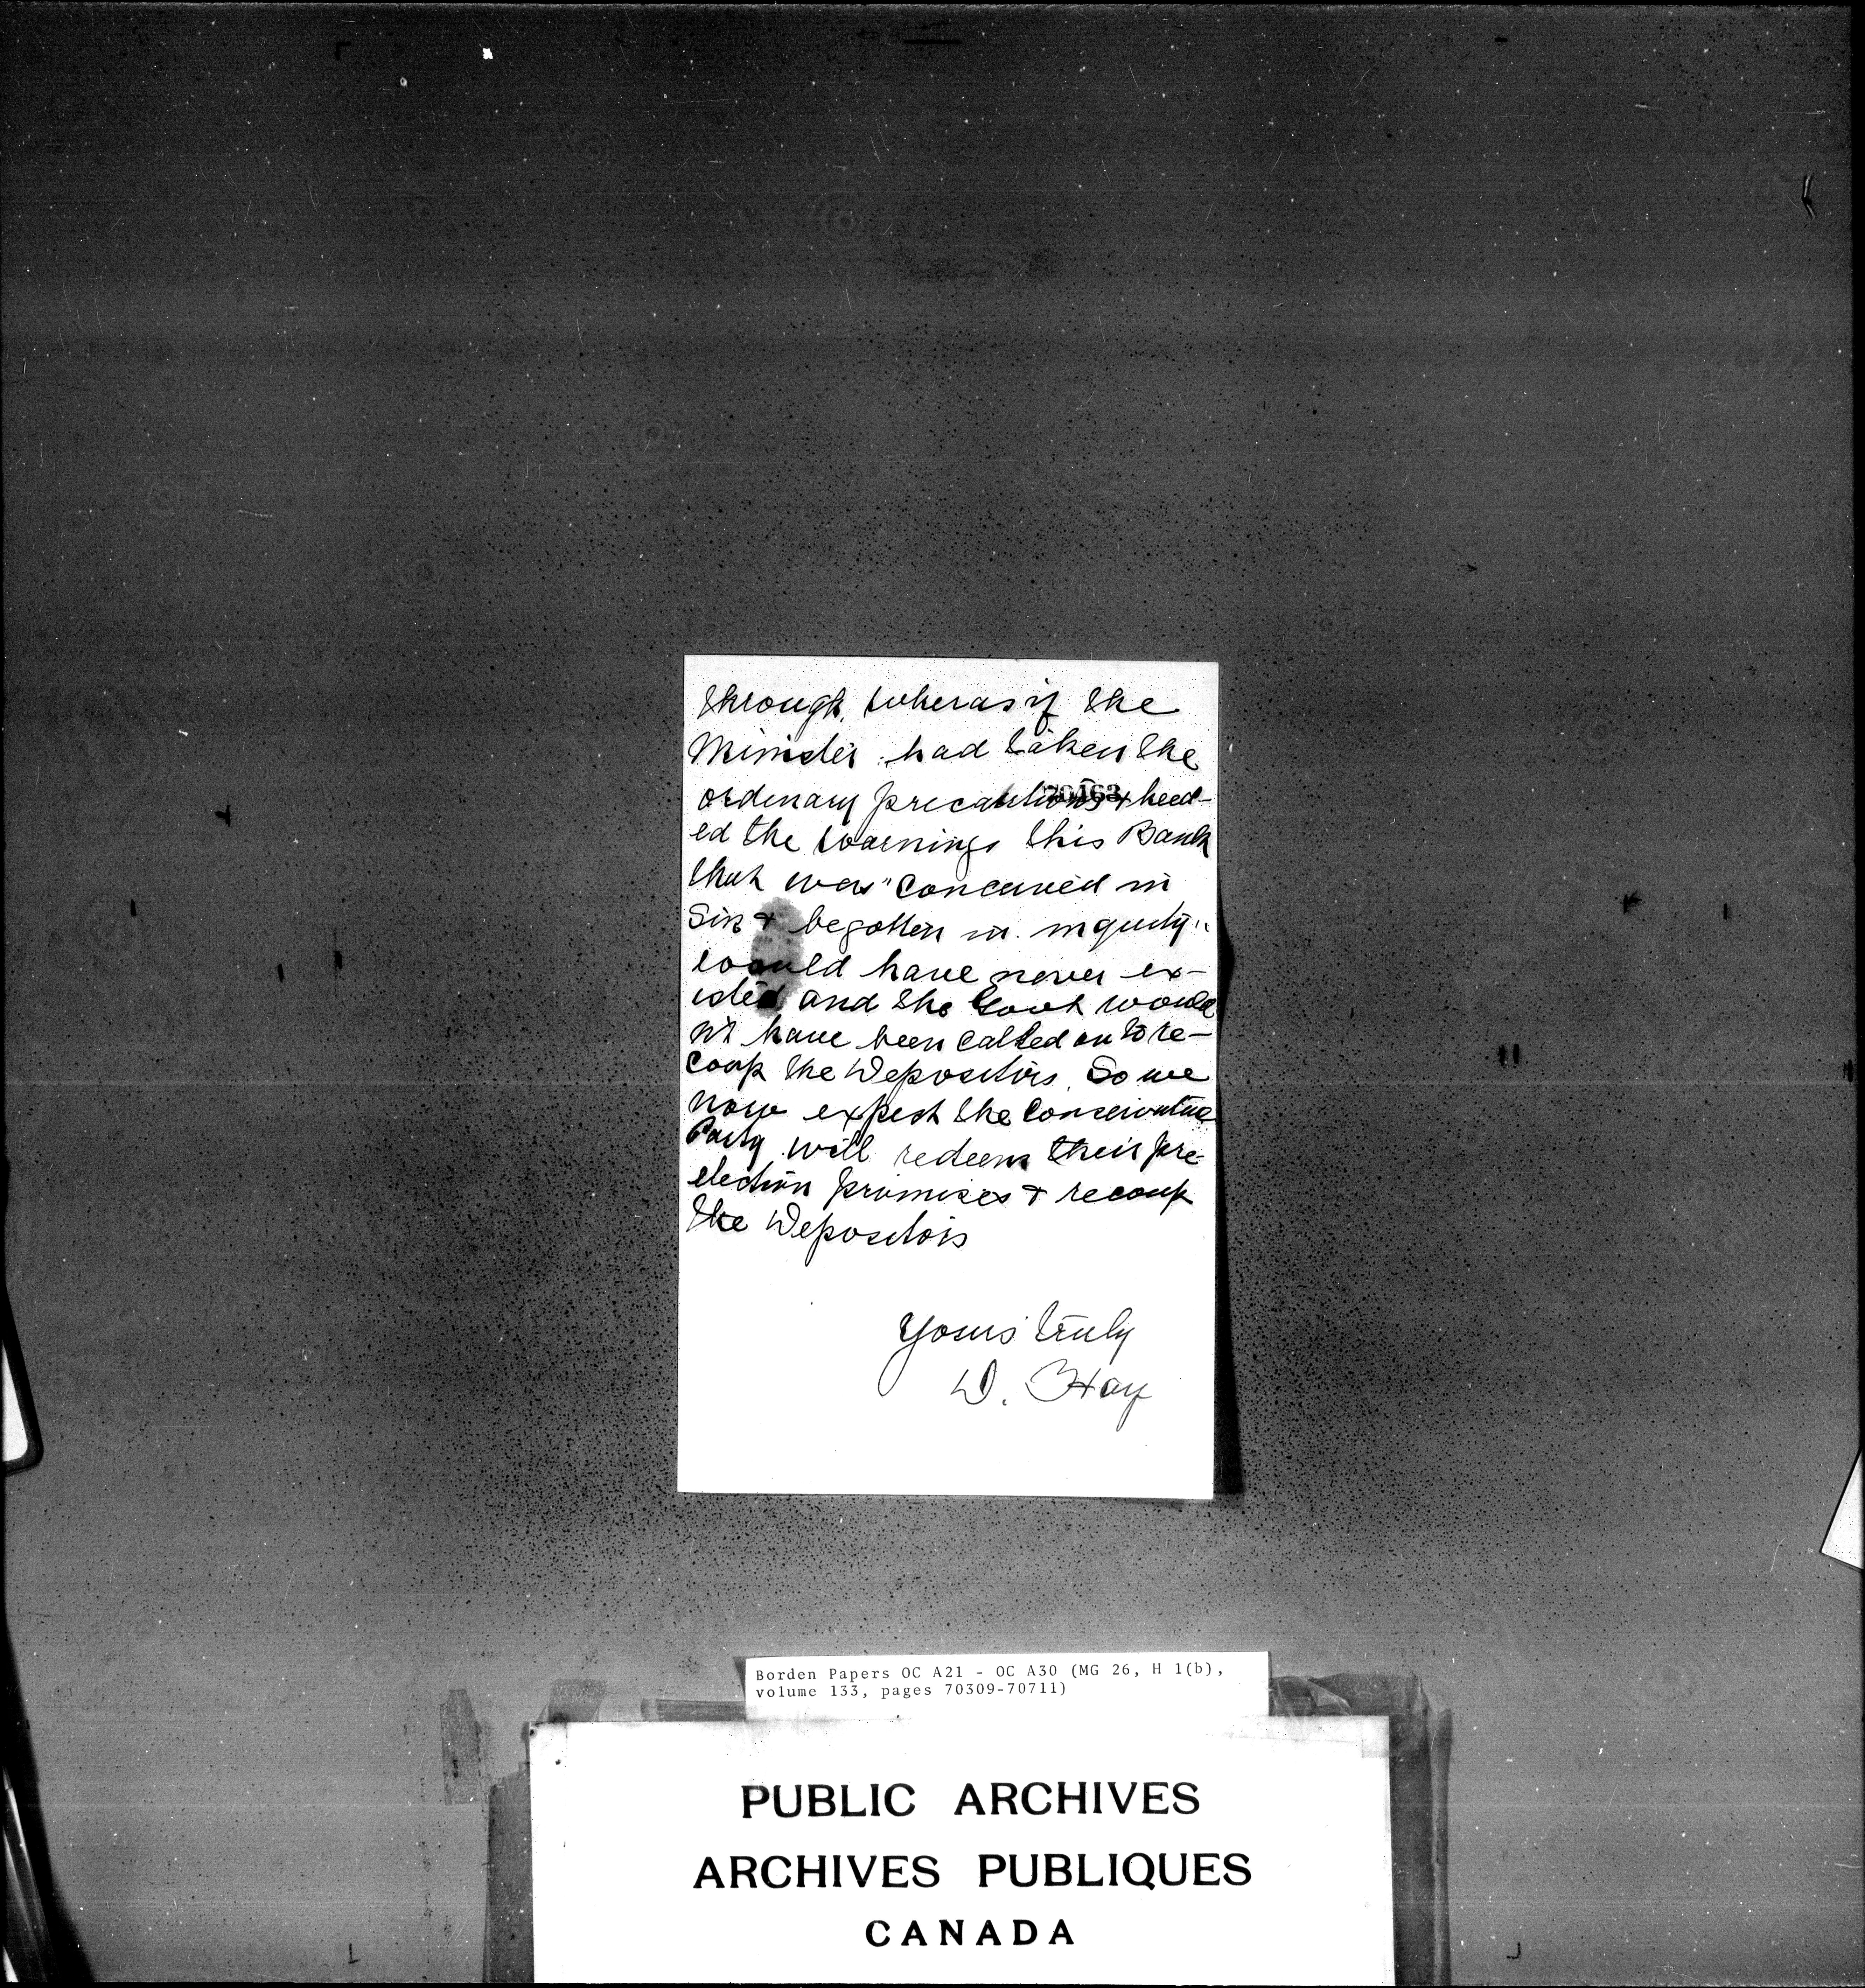 through, wheras if the
Minister had taken the
ordinary precautions & heed-
70463
ed the warnings this Bank
that was "conceived in
Sin & begotten in iniquity"
would have never ex-
isted and the Govt would
nt have been called on to re-
coup the Depositors. So we
now expect the Conservative
Party will redeem their pre
election promises & recoup
the Depositors
Yours truly
D. Hay
Borden Papers OC A21 - OC A30 (MG 26, H 1(b),
volume 133, pages 70309-70711)
PUBLIC ARCHIVES
ARCHIVES PUBLIQUES
CANADA